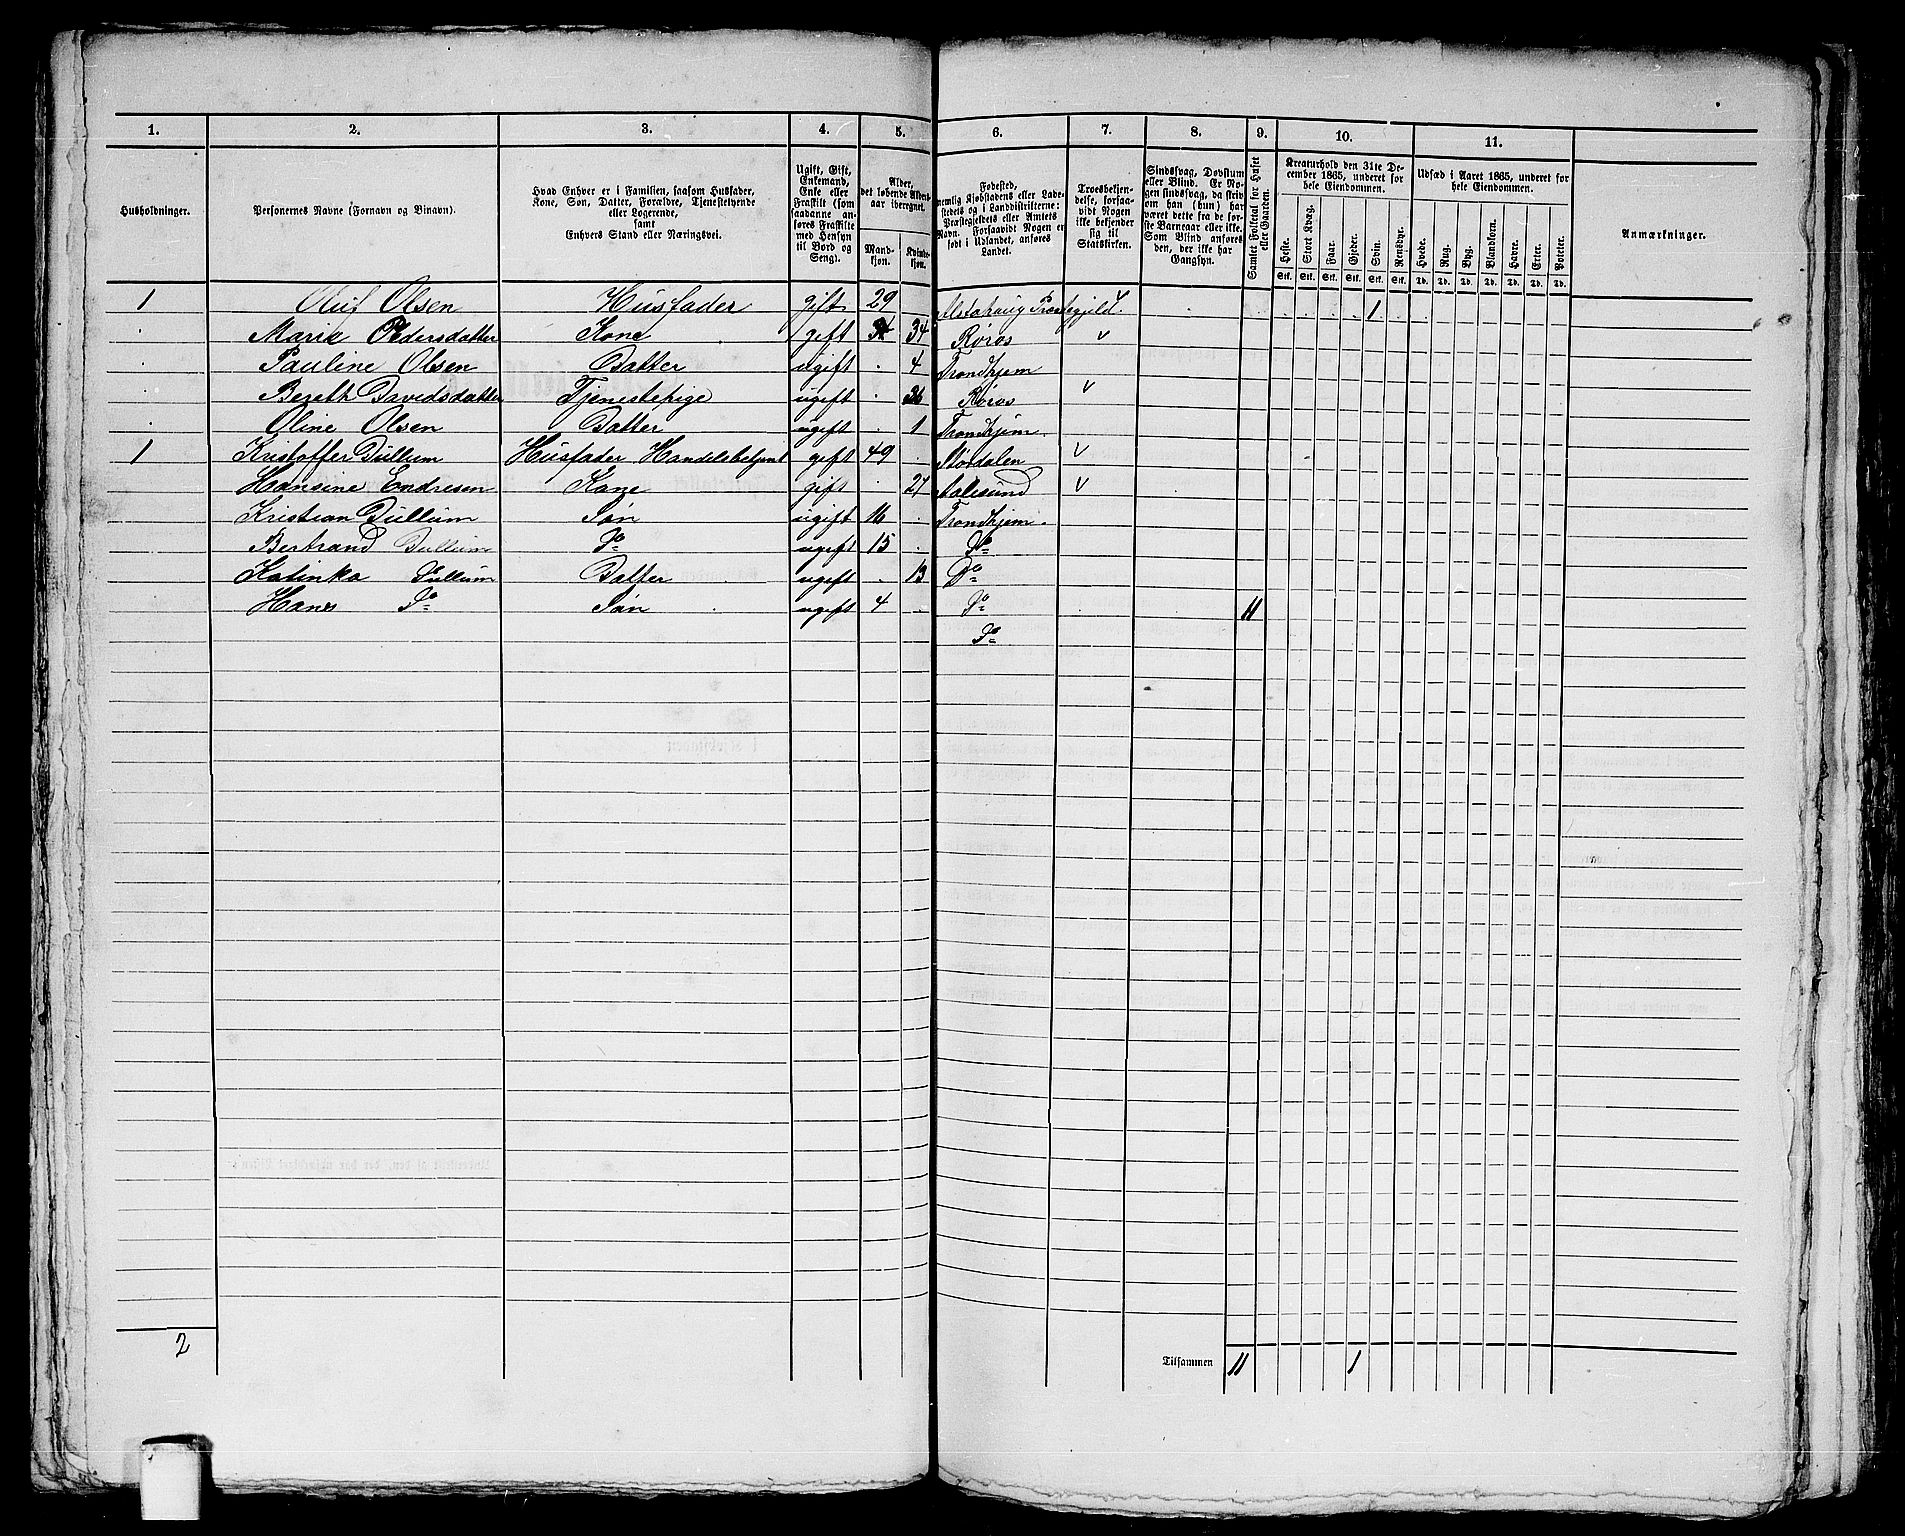 1. 2. 3. 4. 5. 6. 7. 8. 9. 10. 11.
Husholdninger.
Personernes Navne (Fornavn og Binavn).
Hvad Enhver er i Familien, saasom Husfader,
Kone, Søn, Datter, Forældre, Tjenestetyende
eller Logerende,
samt
Enhvers Stand eller Næringsvei.
Ugift, Gift,
Enkemand,
Enke eller
Fraskilt (som
saadanne an-
føres Fraskilte
med Hensyn
til Bord og
Seng).
Alder,
det løbende Alders-
aar iberegnet.
Mand-
kjøn.
Kvinde-
kjøn.
Fødested,
nemlig Kjøbstadens eller Lade-
stedets og i Landdistrikterne:
Præstegjeldets eller Amtets
Navn. Forsaavidt Nogen er
født i Udlandet, anføres
Landet.
Troesbekjen-
delse, forsaa-
vidt Nogen
ikke bekjender
sig til
Statskirken.
Sindssvag, Døvstum
eller Blind. Er No-
gen sindssvag, da skriv
om han (hun) har
været dette fra de før-
ste Barneaar eller ikke.
Som Blind anføres
den, der ikke har
Gangsyn.
Samlet Folketal for Huset
eller Gaarden.
Kreaturhold den 31te De-
cember 1865, underet for
hele Eiendommen.
Heste. Stort Kvæg. Faar. Gjeder. Svin. Rensdyr.
Stk. Stk. Stk. Stk. Stk. Stk.
Udsæd i Aaret 1865, underet for
hele Eiendommen.
Hvede. Rug. Byg. Blandkorn. Havre. Erter. Poteter.
Td. Td. Td. Td. Td. Td. Td.
Anmærkninger.
1 Oluf Olsen Husfader gift 29 Alstahaug Præstegjeld. 1
Marie Pedersdatter Kone gift 34 Røros v
Pauline Olsen Datter ugift 4 Trondhjem
Bereth Davidsdatter Tjenestepige ugift 36 Røros v
Oline Olsen Datter ugift 1 Trondhjem
1 Kristoffer Dullum Husfader Handelsbetjent gift 49 Størdalen v
Hansine Endresen Kone gift 27 Aalesund v
Kristian Dullum Søn ugift 16 Trondhjem
Bertrand Dullum Do ugift 15 Do
Katinka Dullum Datter ugift 13 Do
Hans Do Søn ugift 4 Do 11
Do
2
Tilsammen 11 1